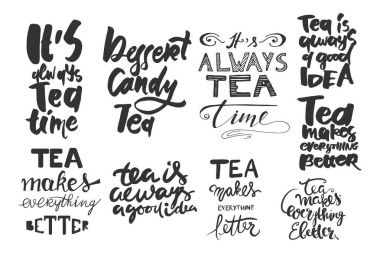 It's
always
Tea
time
Dessert
Candy
Tea
It's
ALWAYS
TEA
time
Tea is
always
a good
IDEA
Tea
makes
everything
Better
TEA
makes
everything
BETTER
tea is
always
a good idea
TEA
makes
EVERYTHING
letter
Tea
makes
everything
better